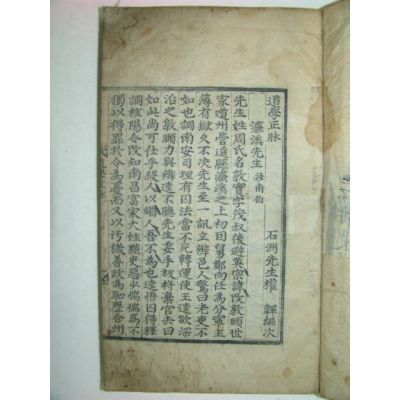 道學正脉
濂溪先生 汝南伯
石洲先生權 韠編次
先生姓周氏名敦實字茂叔後避英宗諱改敦頤世
家道州營道縣濂溪之上初因舅鄭向任為分寧主
薄有獄久不決先生至一訊立辨邑人驚曰老吏不
如也調南安司理有囚法當不死轉運使王逵欲深
治之敦頤力與辨逵不聽先生委手板將棄官去曰
如此尚可仕乎殺人以媚人吾不為也逵悟囚得釋
調桂陽令改知南昌富家大姓黠吏惡少惴惴焉不
獨以得罪於令為憂而又以汚穢善政為恥歷合州